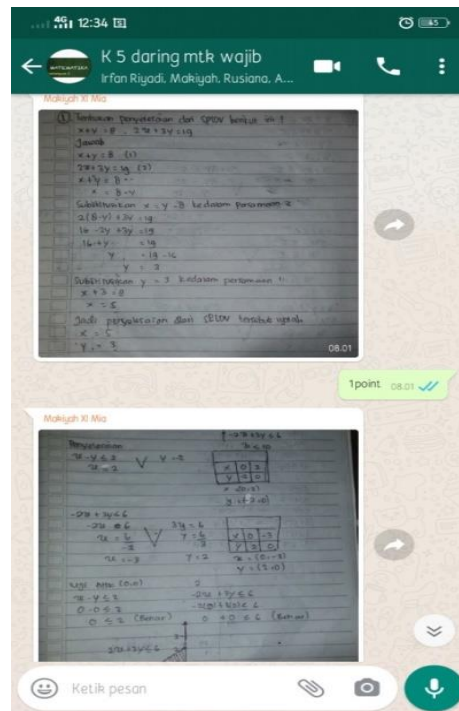 4G 12:34
85
MATEMATIKA
K 5 daring mtk wajib
Irfan Riyadi, Makiyah, Rusiana, A...
Makiyah XI Mia
① Tentukan penyelesaian dari SPLDV berikut ini !
x+y = 8 , 2x + 3y = 19
Jawab
x+y = 8 (1)
2x+3y = 19 (2)
x+y = 8
x = 8-y
Substitusikan x = y - 8 kedalam persamaan 2
2(8-y) +3y = 19
16 - 2y +3y = 19
16+y = 19
y = 19-16
y = 3
Substitusikan y = 3 kedalam persamaan 1
x + 3 = 8
x = 5
Jadi penyelesaian dari SPLDV tersebut
x = 5
y = 3
08.01
1point 08.01
Makiyah XI Mia
Penyelesaian
x - y ≤ 2
x = 2 V y = -2
-2x + 3y ≤ 6
3y = 6
y = 2
x = -3
Uji (0,0)
x - y ≤ 2
0 - 0 ≤ 2
0 ≤ 2 (Benar)
-2x + 3y ≤ 6
0 + 0 ≤ 6 (Benar)
Ketik pesan